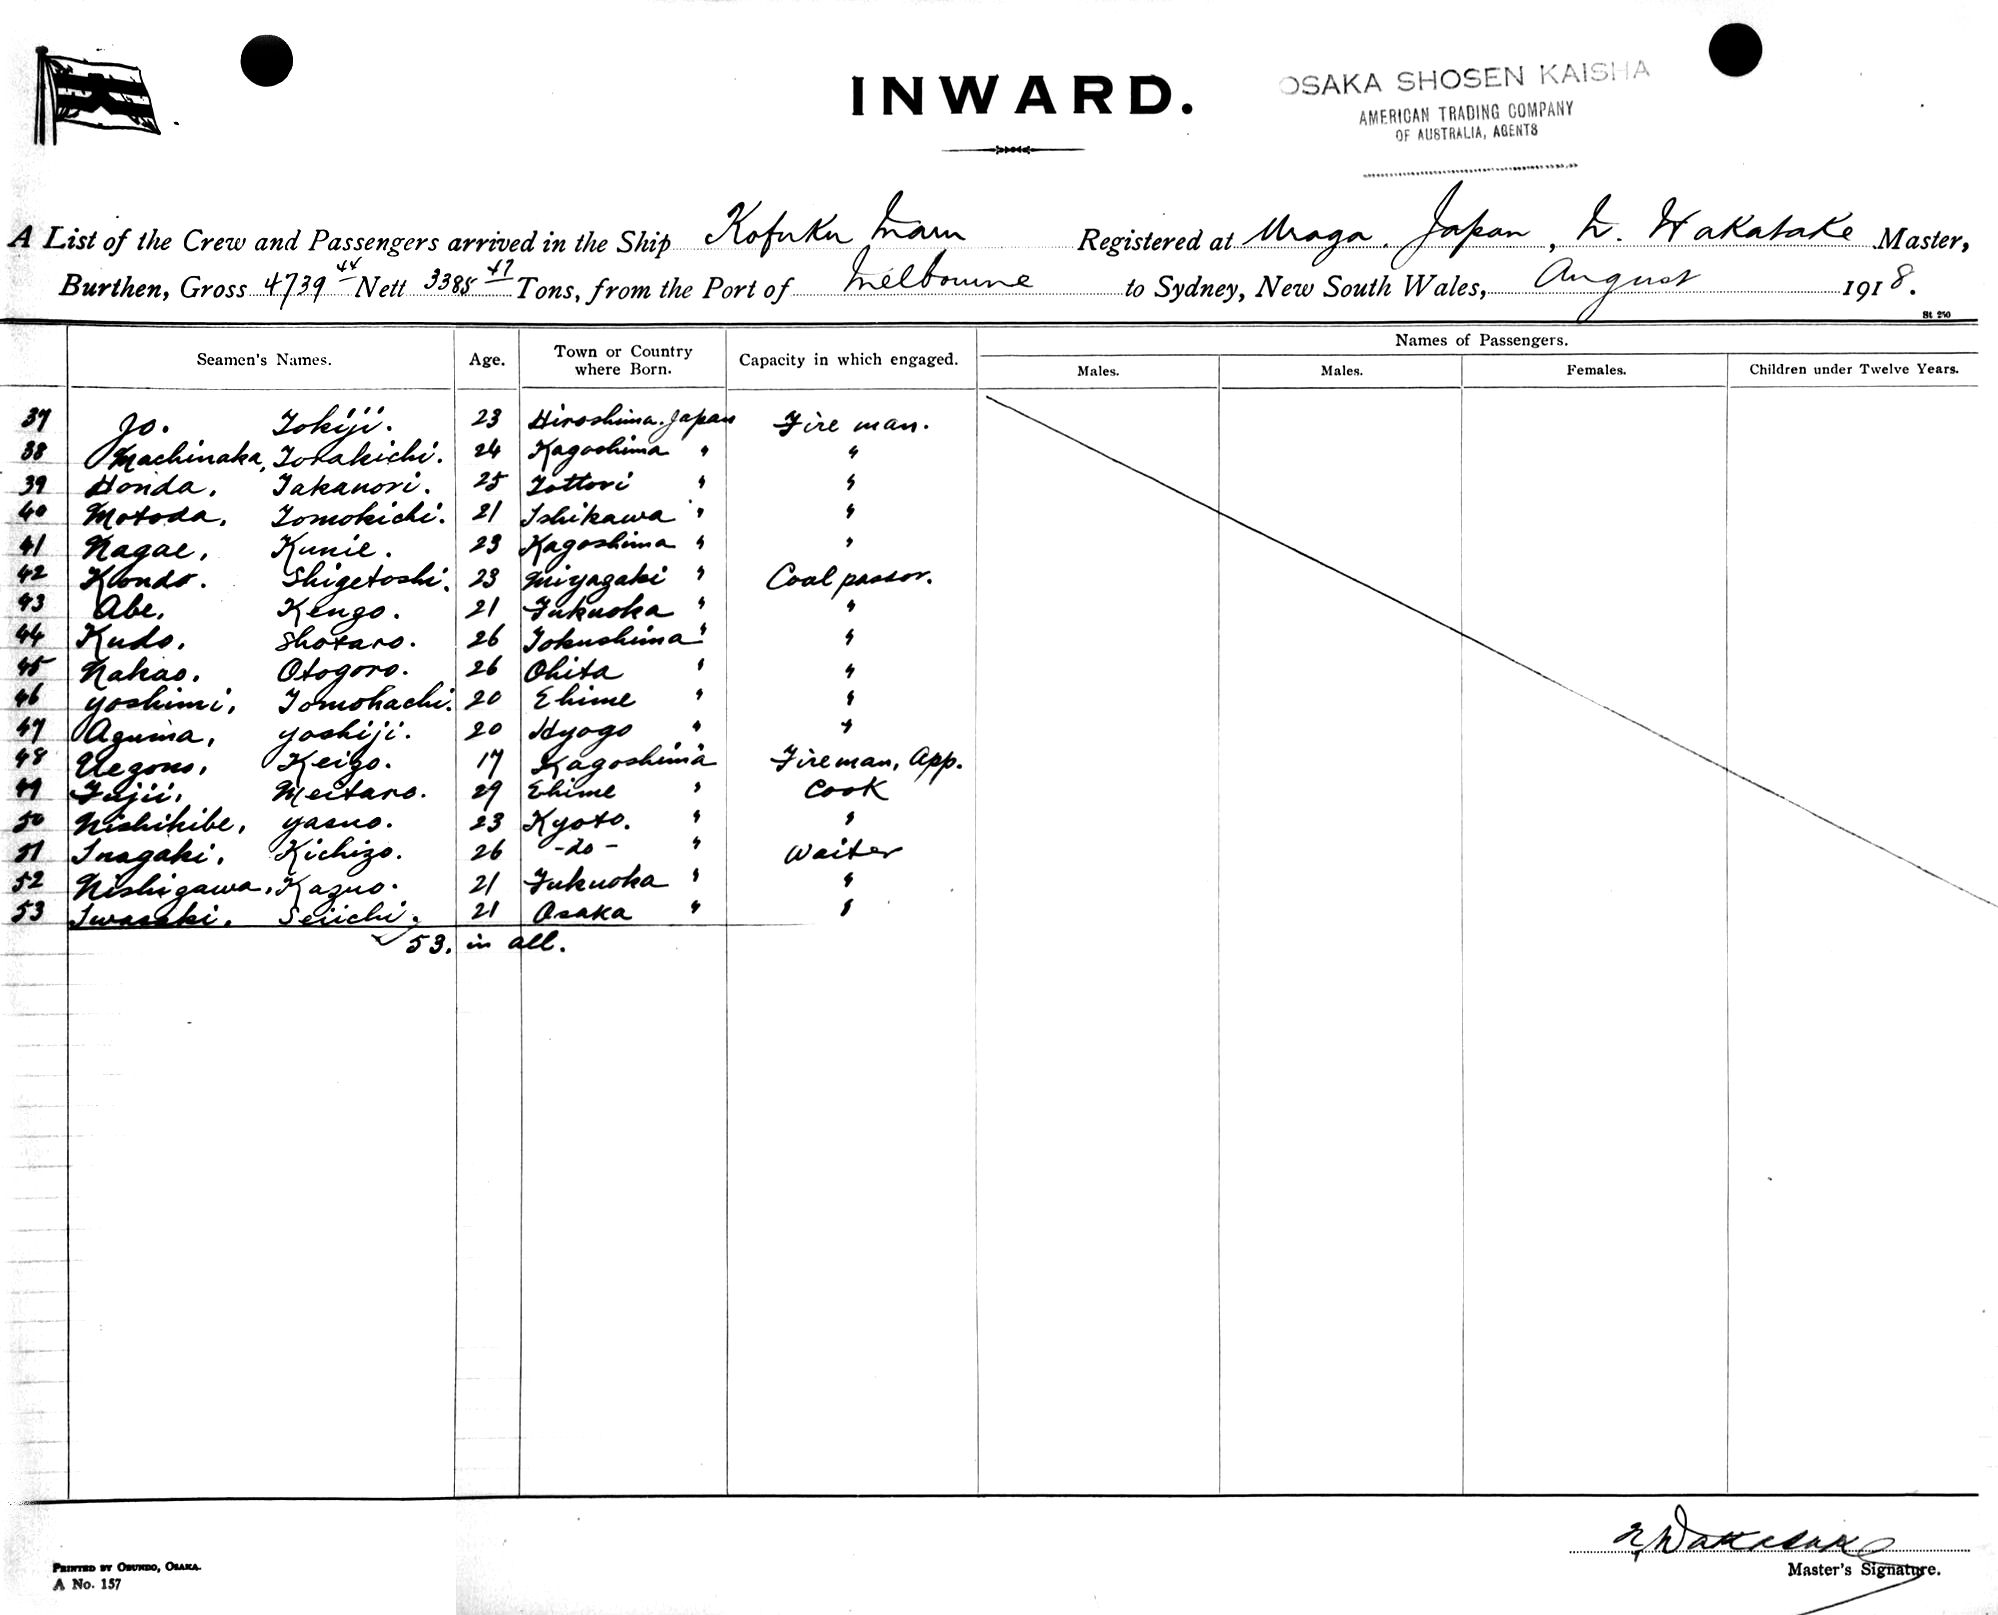 INWARD.
OSAKA SHOSEN KAISHA
AMERICAN TRADING COMPANY
OF AUSTRALIA, AGENTS
A List of the Crew and Passengers arrived in the Ship Kofuku Maru Registered at Uraga. Japan, N. Wakatake Master,
Burthen, Gross 4739 44 Nett 3385 47 Tons, from the Port of Melbourne to Sydney, New South Wales, August 1918.
St. 250
Seamen's Names. Age. Town or Country where Born. Capacity in which engaged. Names of Passengers.
Males. Males. Females. Children under Twelve Years.
37 Jo. Tokiji. 23 Hiroshima. Japan Fire man.
38 Machinaka, Torakichi. 24 Kagoshima " "
39 Honda, Takanori. 25 Tottori " "
40 Motoda, Tomokichi. 21 Ishikawa " "
41 Nagae, Kunie. 23 Kagoshima " "
42 Kondo. Shigetoshi. 23 Miyazaki " Coal passor.
43 Abe, Kengo. 21 Fukuoka " "
44 Kudo, Shotaro. 26 Tokushima " "
45 Nakao, Otogoro. 26 Ohita " "
46 Yoshimi, Tomohachi. 20 Ehime " "
47 Azuma, Yoshiji. 20 Hyogo " "
48 Uezono, Keizo. 17 Kagoshima " Fireman, App.
49 Fujii, Meitaro. 29 Ehime " Cook
50 Nishikibe, Yasuo. 23 Kyoto. " "
51 Inagaki, Kichizo. 26 -do- " Waiter
52 Nishigawa, Kazuo. 21 Fukuoka " "
53 Iwasaki, Seiichi. 21 Osaka " "
53. in all.
N. Wakatake
Master's Signature.
PRINTED BY OBUNDO, OSAKA.
A No. 157